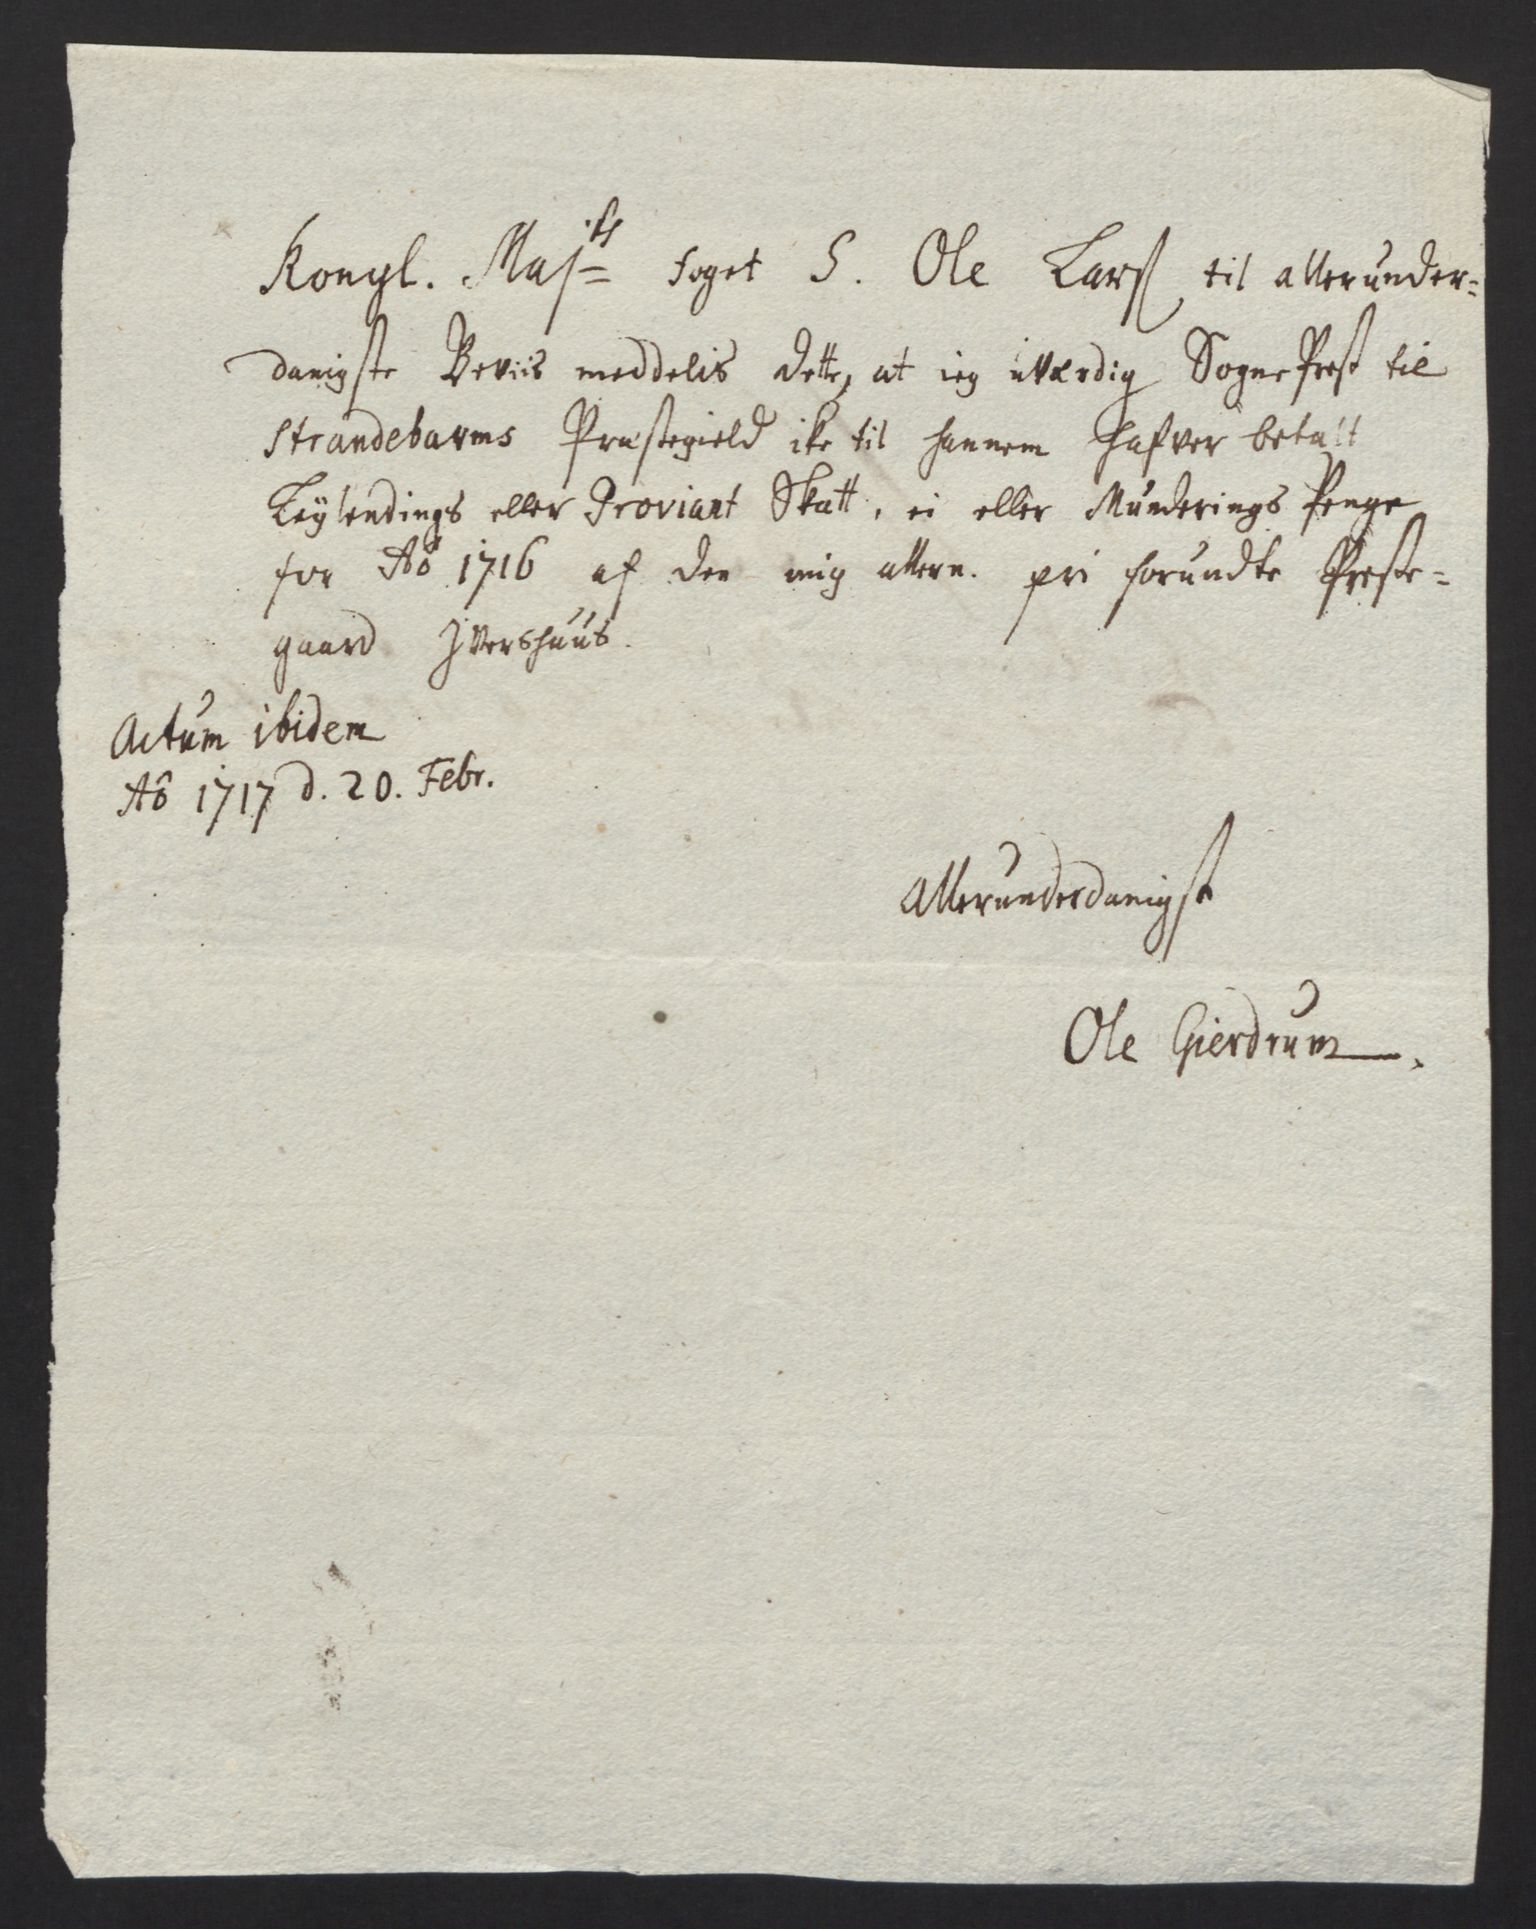 Kongl. Maj^ts foget S. Ole Larss til allerunder=
danigste Beviis meddelis dette, at ieg uværdig Sogne Prest til
Strandebarms Præstegield ike til hannem hafver betalt
Leylendings eller Proviant Skatt, ei eller Munderings Penge
for Aō 1716 af den mig allern. fri forundte Preste=
gaard Ivershuus.
Actum ibidem
Aō 1717 d. 20. Febr.
Allerunderdanigst
Ole Gierdrum.